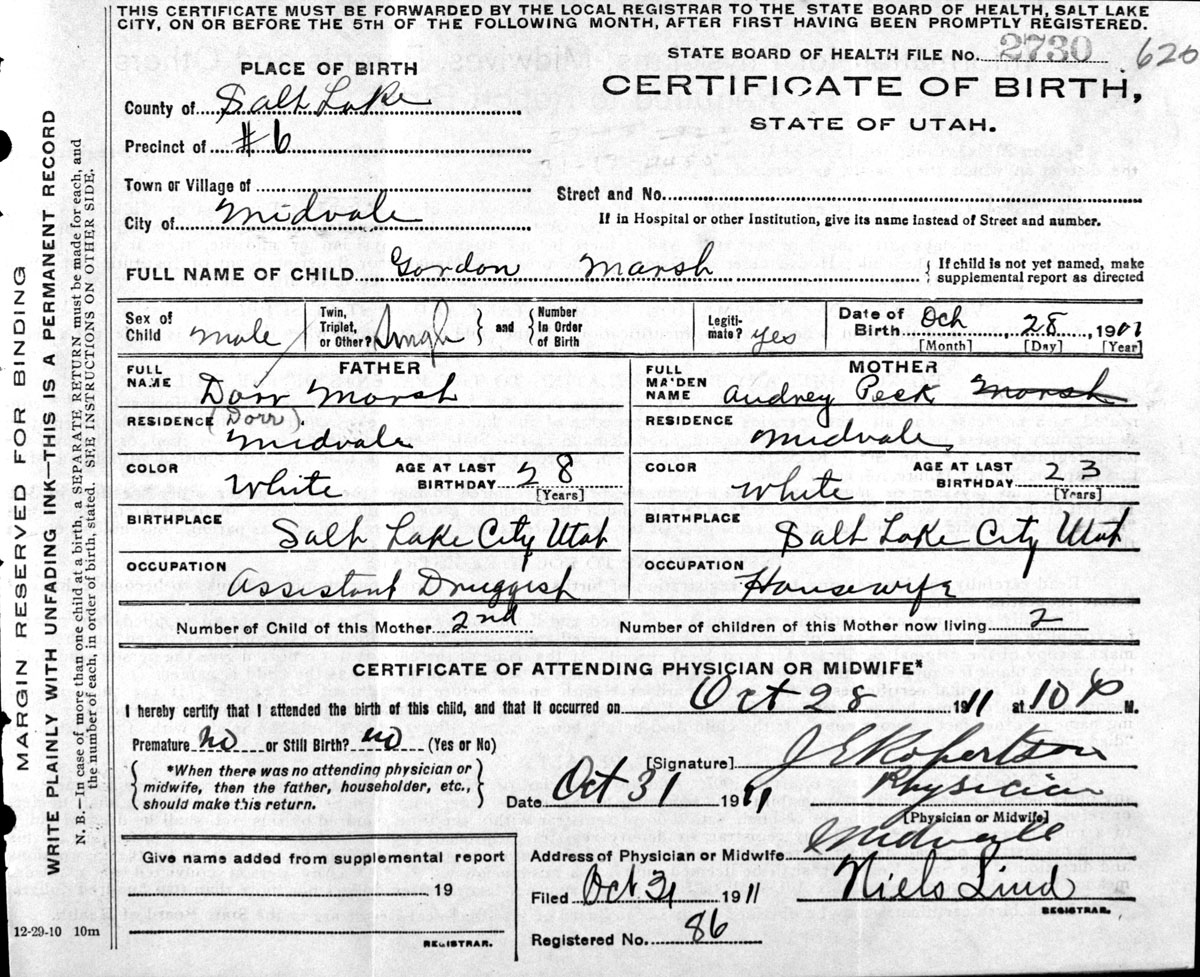 THIS CERTIFICATE MUST BE FORWARDED BY THE LOCAL REGISTRAR TO THE STATE BOARD OF HEALTH, SALT LAKE
CITY, ON OR BEFORE THE 5TH OF THE FOLLOWING MONTH, AFTER FIRST HAVING BEEN PROMPTLY REGISTERED.
STATE BOARD OF HEALTH FILE No. 2730 620
PLACE OF BIRTH
CERTIFICATE OF BIRTH,
STATE OF UTAH.
County of Salt Lake
Precinct of #6
Town or Village of
Street and No.
City of Midvale
If in Hospital or other Institution, give its name instead of Street and number.
FULL NAME OF CHILD Gordon Marsh { If child is not yet named, make
supplemental report as directed
Sex of
Child Male
Twin,
Triplet,
or Other? Single } and { Number
In Order
of Birth
Legiti-
mate? yes
Date of
Birth Oct 28, 1911
[Month] [Day] [Year]
FATHER
FULL
NAME Dorr Marsh
(Dorr)
RESIDENCE
Midvale
COLOR White AGE AT LAST
BIRTHDAY 28
[Years]
BIRTHPLACE
Salt Lake City Utah
OCCUPATION
Assistant Druggist
MOTHER
FULL
MAIDEN
NAME Audrey Peck Marsh
RESIDENCE
Midvale
COLOR White AGE AT LAST
BIRTHDAY 23
[Years]
BIRTHPLACE
Salt Lake City Utah
OCCUPATION
Housewife
Number of Child of this Mother 2nd Number of children of this Mother now living 2
CERTIFICATE OF ATTENDING PHYSICIAN OR MIDWIFE*
I hereby certify that I attended the birth of this child, and that it occurred on Oct 28 1911 at 10 P M.
Premature no or Still Birth? no (Yes or No)
[Signature] J E Robertson
{ *When there was no attending physician or
midwife, then the father, householder, etc.,
should make this return. }
Date Oct 31 1911 Physician
[Physician or Midwife]
Give name added from supplemental report
19
REGISTRAR.
Address of Physician or Midwife Midvale
Filed Oct 31 1911 Niels Lind
REGISTRAR.
Registered No. 86
12-29-10 10m
MARGIN RESERVED FOR BINDING
WRITE PLAINLY WITH UNFADING INK—THIS IS A PERMANENT RECORD
N. B.—In case of more than one child at a birth, a SEPARATE RETURN must be made for each, and
the number of each, in order of birth, stated. SEE INSTRUCTIONS ON OTHER SIDE.